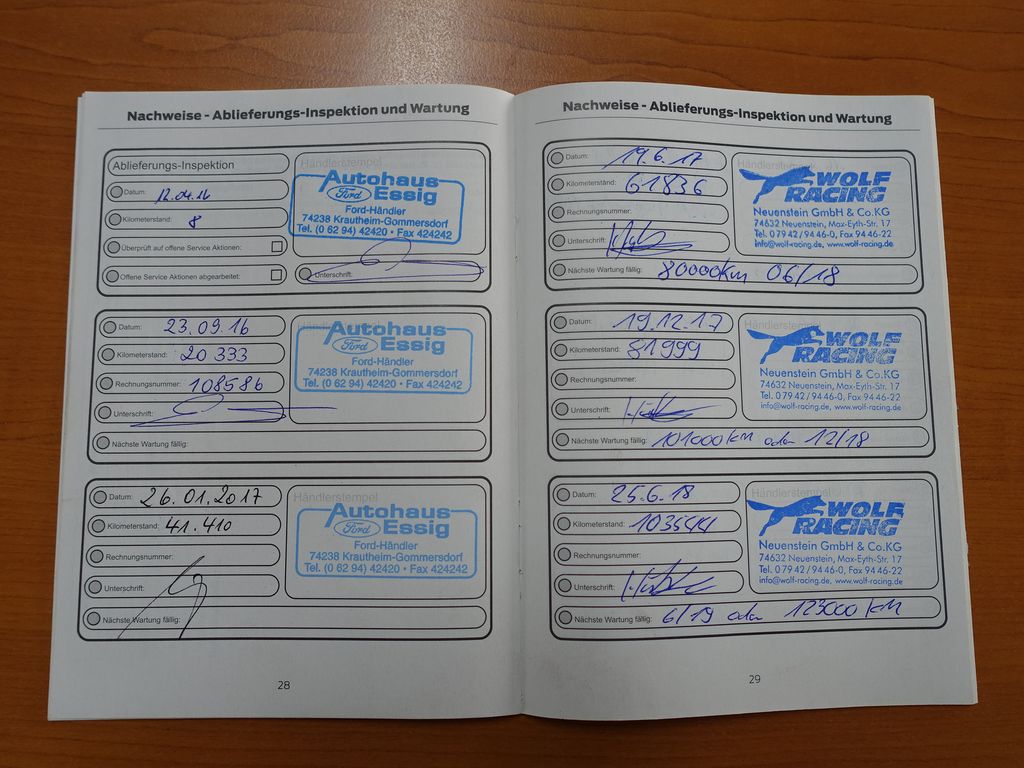 Nachweise - Ablieferungs-Inspektion und Wartung
Ablieferungs-Inspektion
Händlerstempel
Datum: 12.04.16
Kilometerstand: 8
Überprüft auf offene Service Aktionen:
Offene Service Aktionen abgearbeitet:
Autohaus
Ford Essig
Ford-Händler
74238 Krautheim-Gommersdorf
Tel. (0 62 94) 42420 • Fax 424242
Unterschrift:
Datum: 23.09.16
Kilometerstand: 20 333
Rechnungsnummer: 108586
Unterschrift:
Nächste Wartung fällig:
Händlerstempel
Autohaus
Ford Essig
Ford-Händler
74238 Krautheim-Gommersdorf
Tel. (0 62 94) 42420 • Fax 424242
Datum: 26.01.2017
Kilometerstand: 41.410
Rechnungsnummer:
Unterschrift:
Nächste Wartung fällig:
Händlerstempel
Autohaus
Ford Essig
Ford-Händler
74238 Krautheim-Gommersdorf
Tel. (0 62 94) 42420 • Fax 424242
28
Nachweise - Ablieferungs-Inspektion und Wartung
Datum: 19.6.17
Kilometerstand: 61836
Rechnungsnummer:
Unterschrift:
Nächste Wartung fällig: 80000km 06/18
Händlerstempel
WOLF
RACING
Neuenstein GmbH & Co.KG
74632 Neuenstein, Max-Eyth-Str. 17
Tel. 0 79 42 / 94 46-0, Fax 94 46-22
info@wolf-racing.de, www.wolf-racing.de
Datum: 19.12.17
Kilometerstand: 81999
Rechnungsnummer:
Unterschrift:
Nächste Wartung fällig: 101000km oder 12/18
Händlerstempel
WOLF
RACING
Neuenstein GmbH & Co.KG
74632 Neuenstein, Max-Eyth-Str. 17
Tel. 0 79 42 / 94 46-0, Fax 94 46-22
info@wolf-racing.de, www.wolf-racing.de
Datum: 25.6.18
Kilometerstand: 103544
Rechnungsnummer:
Unterschrift:
Nächste Wartung fällig: 6/19 oder 123000 KM
Händlerstempel
WOLF
RACING
Neuenstein GmbH & Co.KG
74632 Neuenstein, Max-Eyth-Str. 17
Tel. 0 79 42 / 94 46-0, Fax 94 46-22
info@wolf-racing.de, www.wolf-racing.de
29